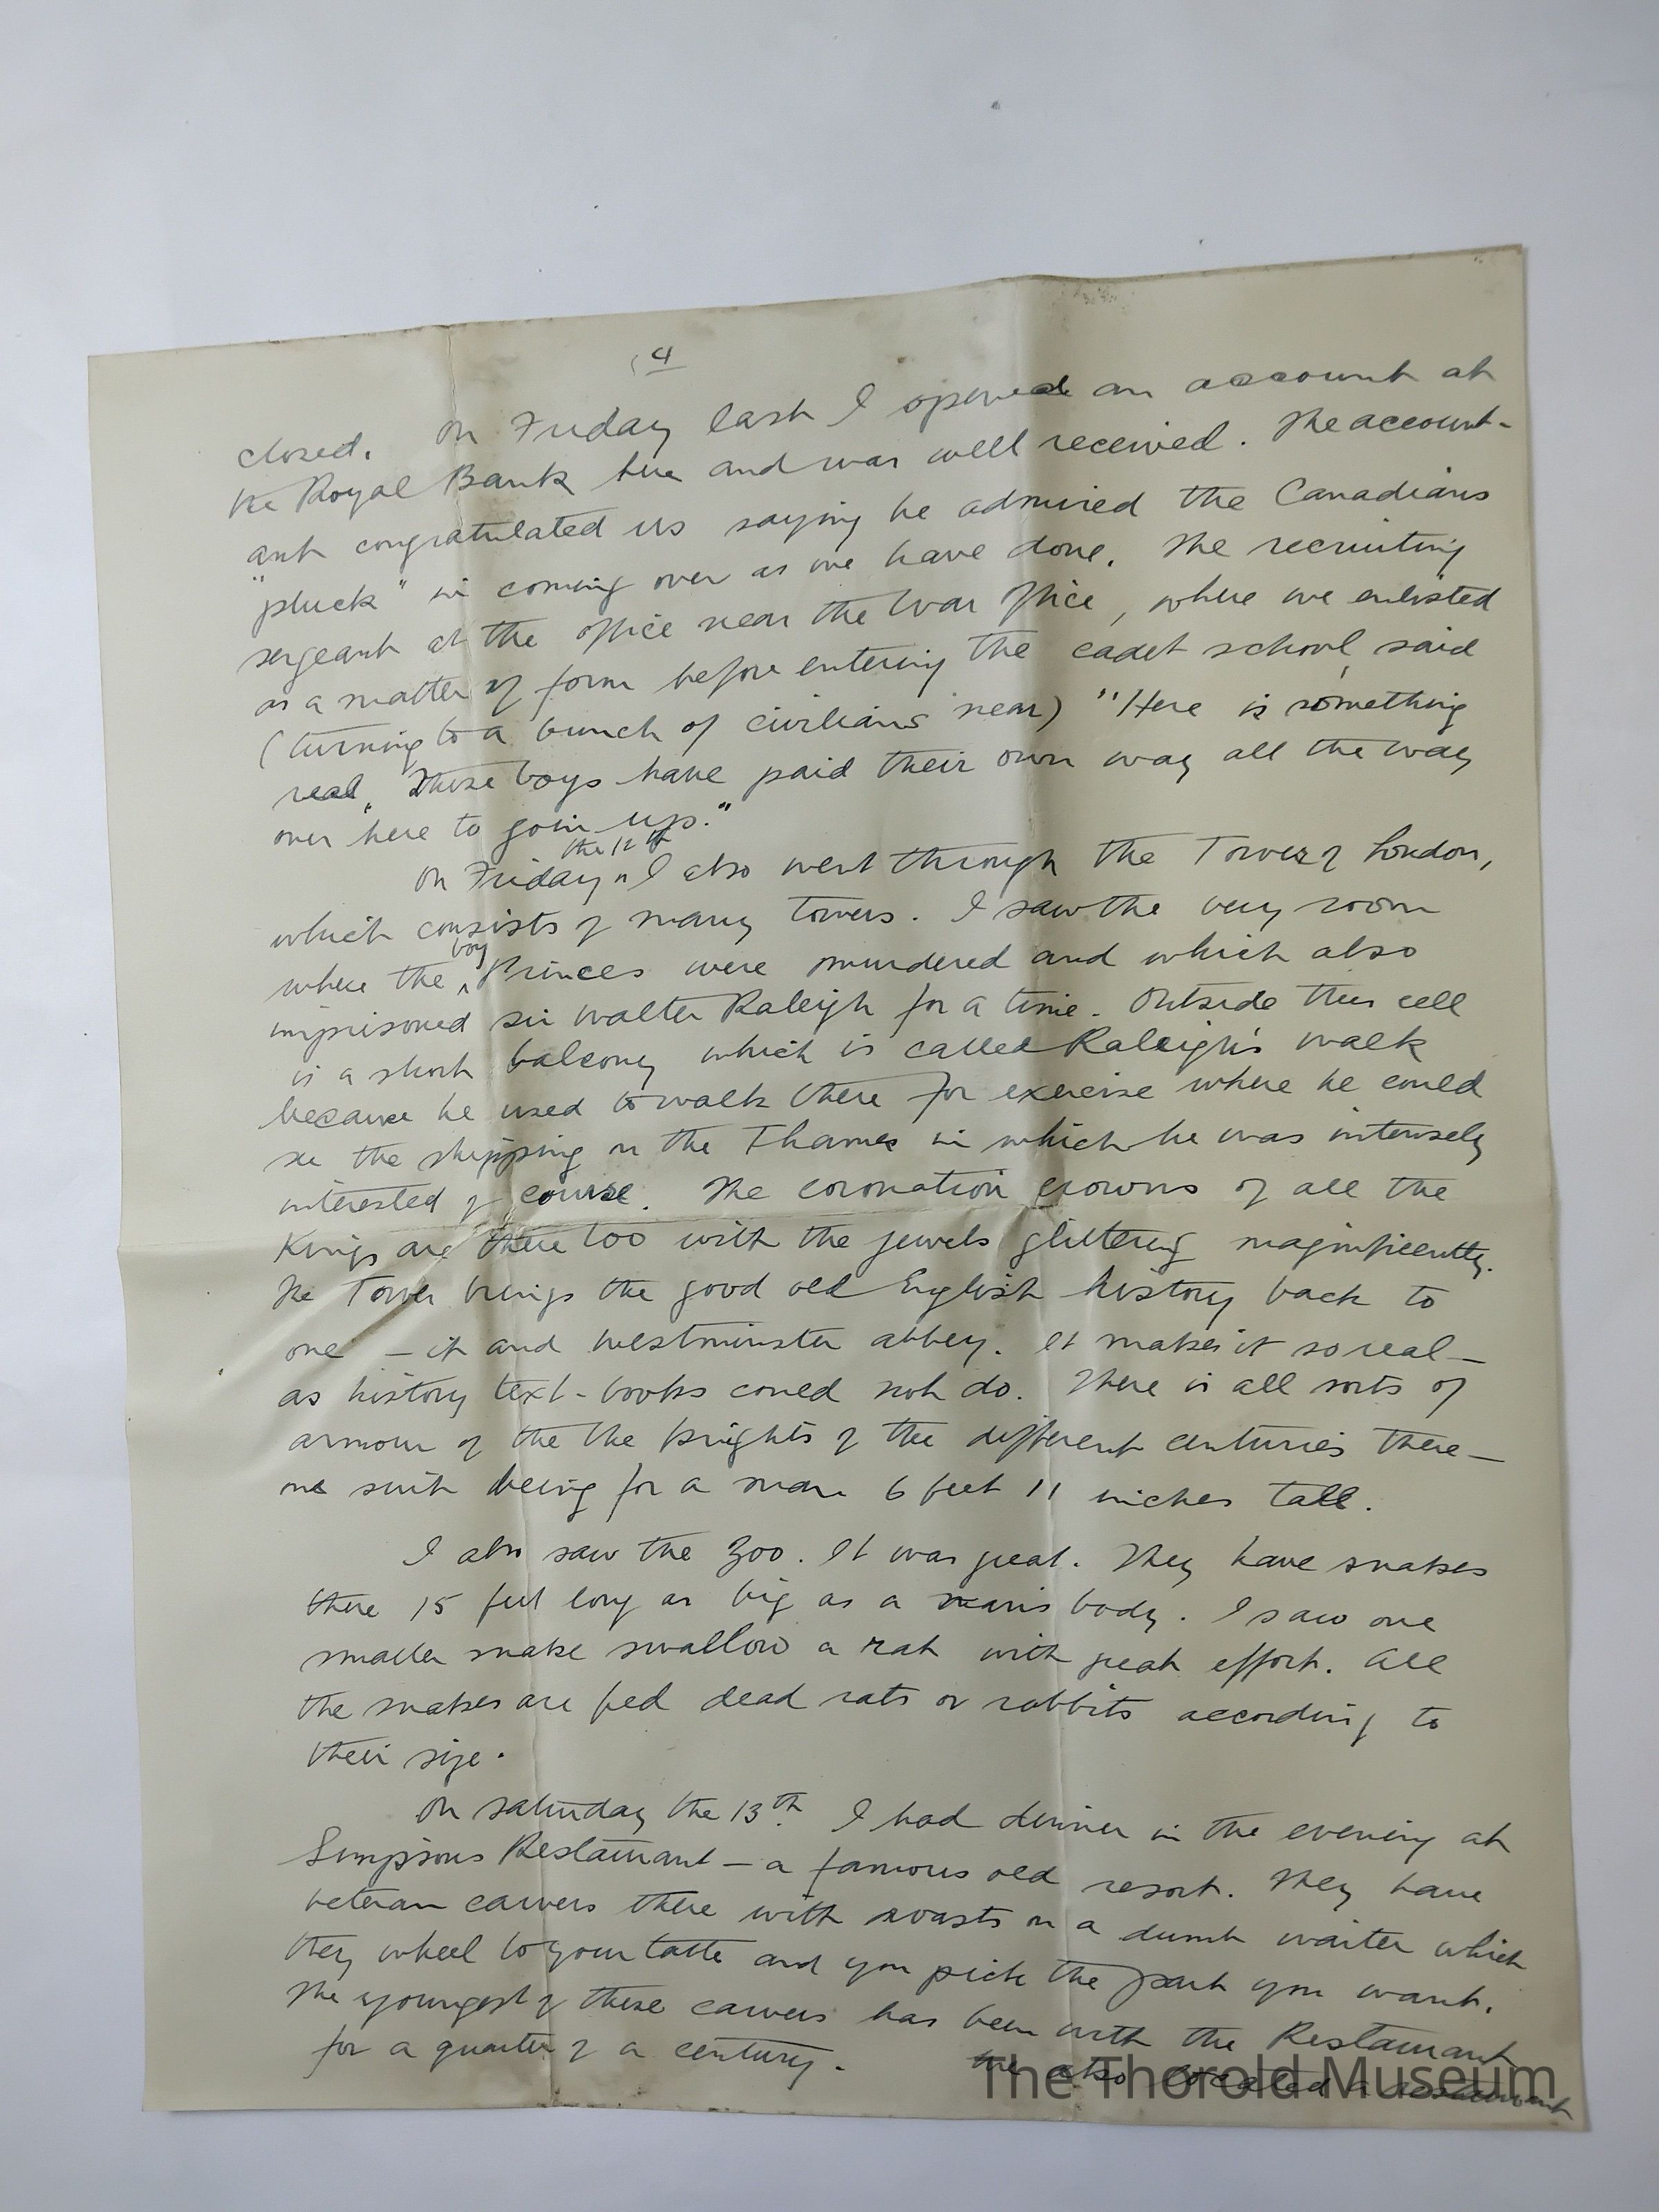 4
closed. On Friday last I opened an account at
the Royal Bank here and was well received. The account-
ant congratulated us saying he admired the Canadians
"pluck" in coming over as we have done. The recruiting
sergeant at the office near the War Office, where we enlisted
as a matter of form before entering the cadet school, said
(turning to a bunch of civilians near) "Here is something
real. These boys have paid their own way all the way
over here to join up."
On Friday the 12th I also went through the Tower of London,
which consists of many towers. I saw the very room
where the boy Princes were murdered and which also
imprisoned Sir Walter Raleigh for a time. Outside this cell
is a short balcony which is called Raleigh's walk
because he used to walk there for exercise where he could
see the shipping on the Thames in which he was intensely
interested of course. The coronation crowns of all the
Kings are there too with the jewels glittering magnificently.
The Tower brings the good old English history back to
one - it and Westminster abbey. It makes it so real -
as history text-books could not do. There is all sorts of
armour of the the knights of the different centuries there -
one suit being for a man 6 feet 11 inches tall.
I also saw the Zoo. It was great. They have snakes
there 15 feet long as big as a man's body. I saw one
smaller snake swallow a rat with great effort. All
the snakes are fed dead rats or rabbits according to
their size.
On Saturday the 13th. I had dinner in the evening at
Simpsons Restaurant - a famous old resort. They have
veteran carvers there with roasts on a dumb waiter which
they wheel to your table and you pick the part you want.
The youngest of these carvers has been with the Restaurant
for a quarter of a century. We also located a restaurant
The Thorold Museum